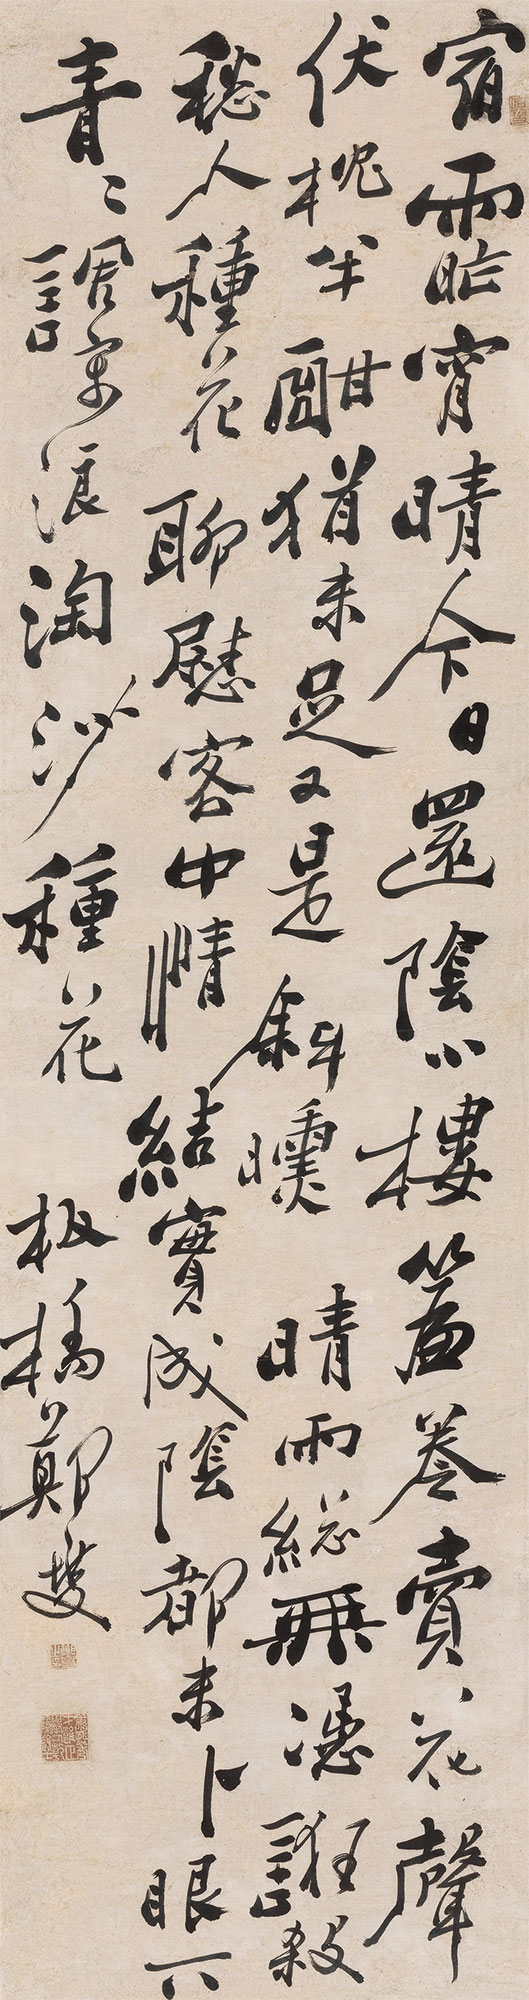 宿雨昨宵晴今日還陰小樓簾卷賣花聲
伏枕半酣猶未足又是斜曛 晴雨総無憑誑殺
愁人種花聊慰客中情 結實成陰都未卜眼下
青〻 調寄浪淘沙 種花 板橋鄭燮